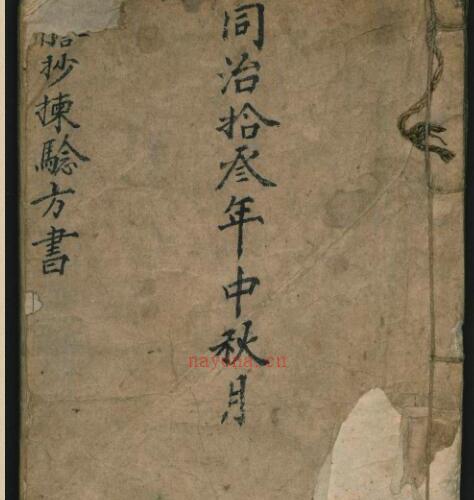 同治拾叄年中秋月
抄揀騐方書
nayona.cn